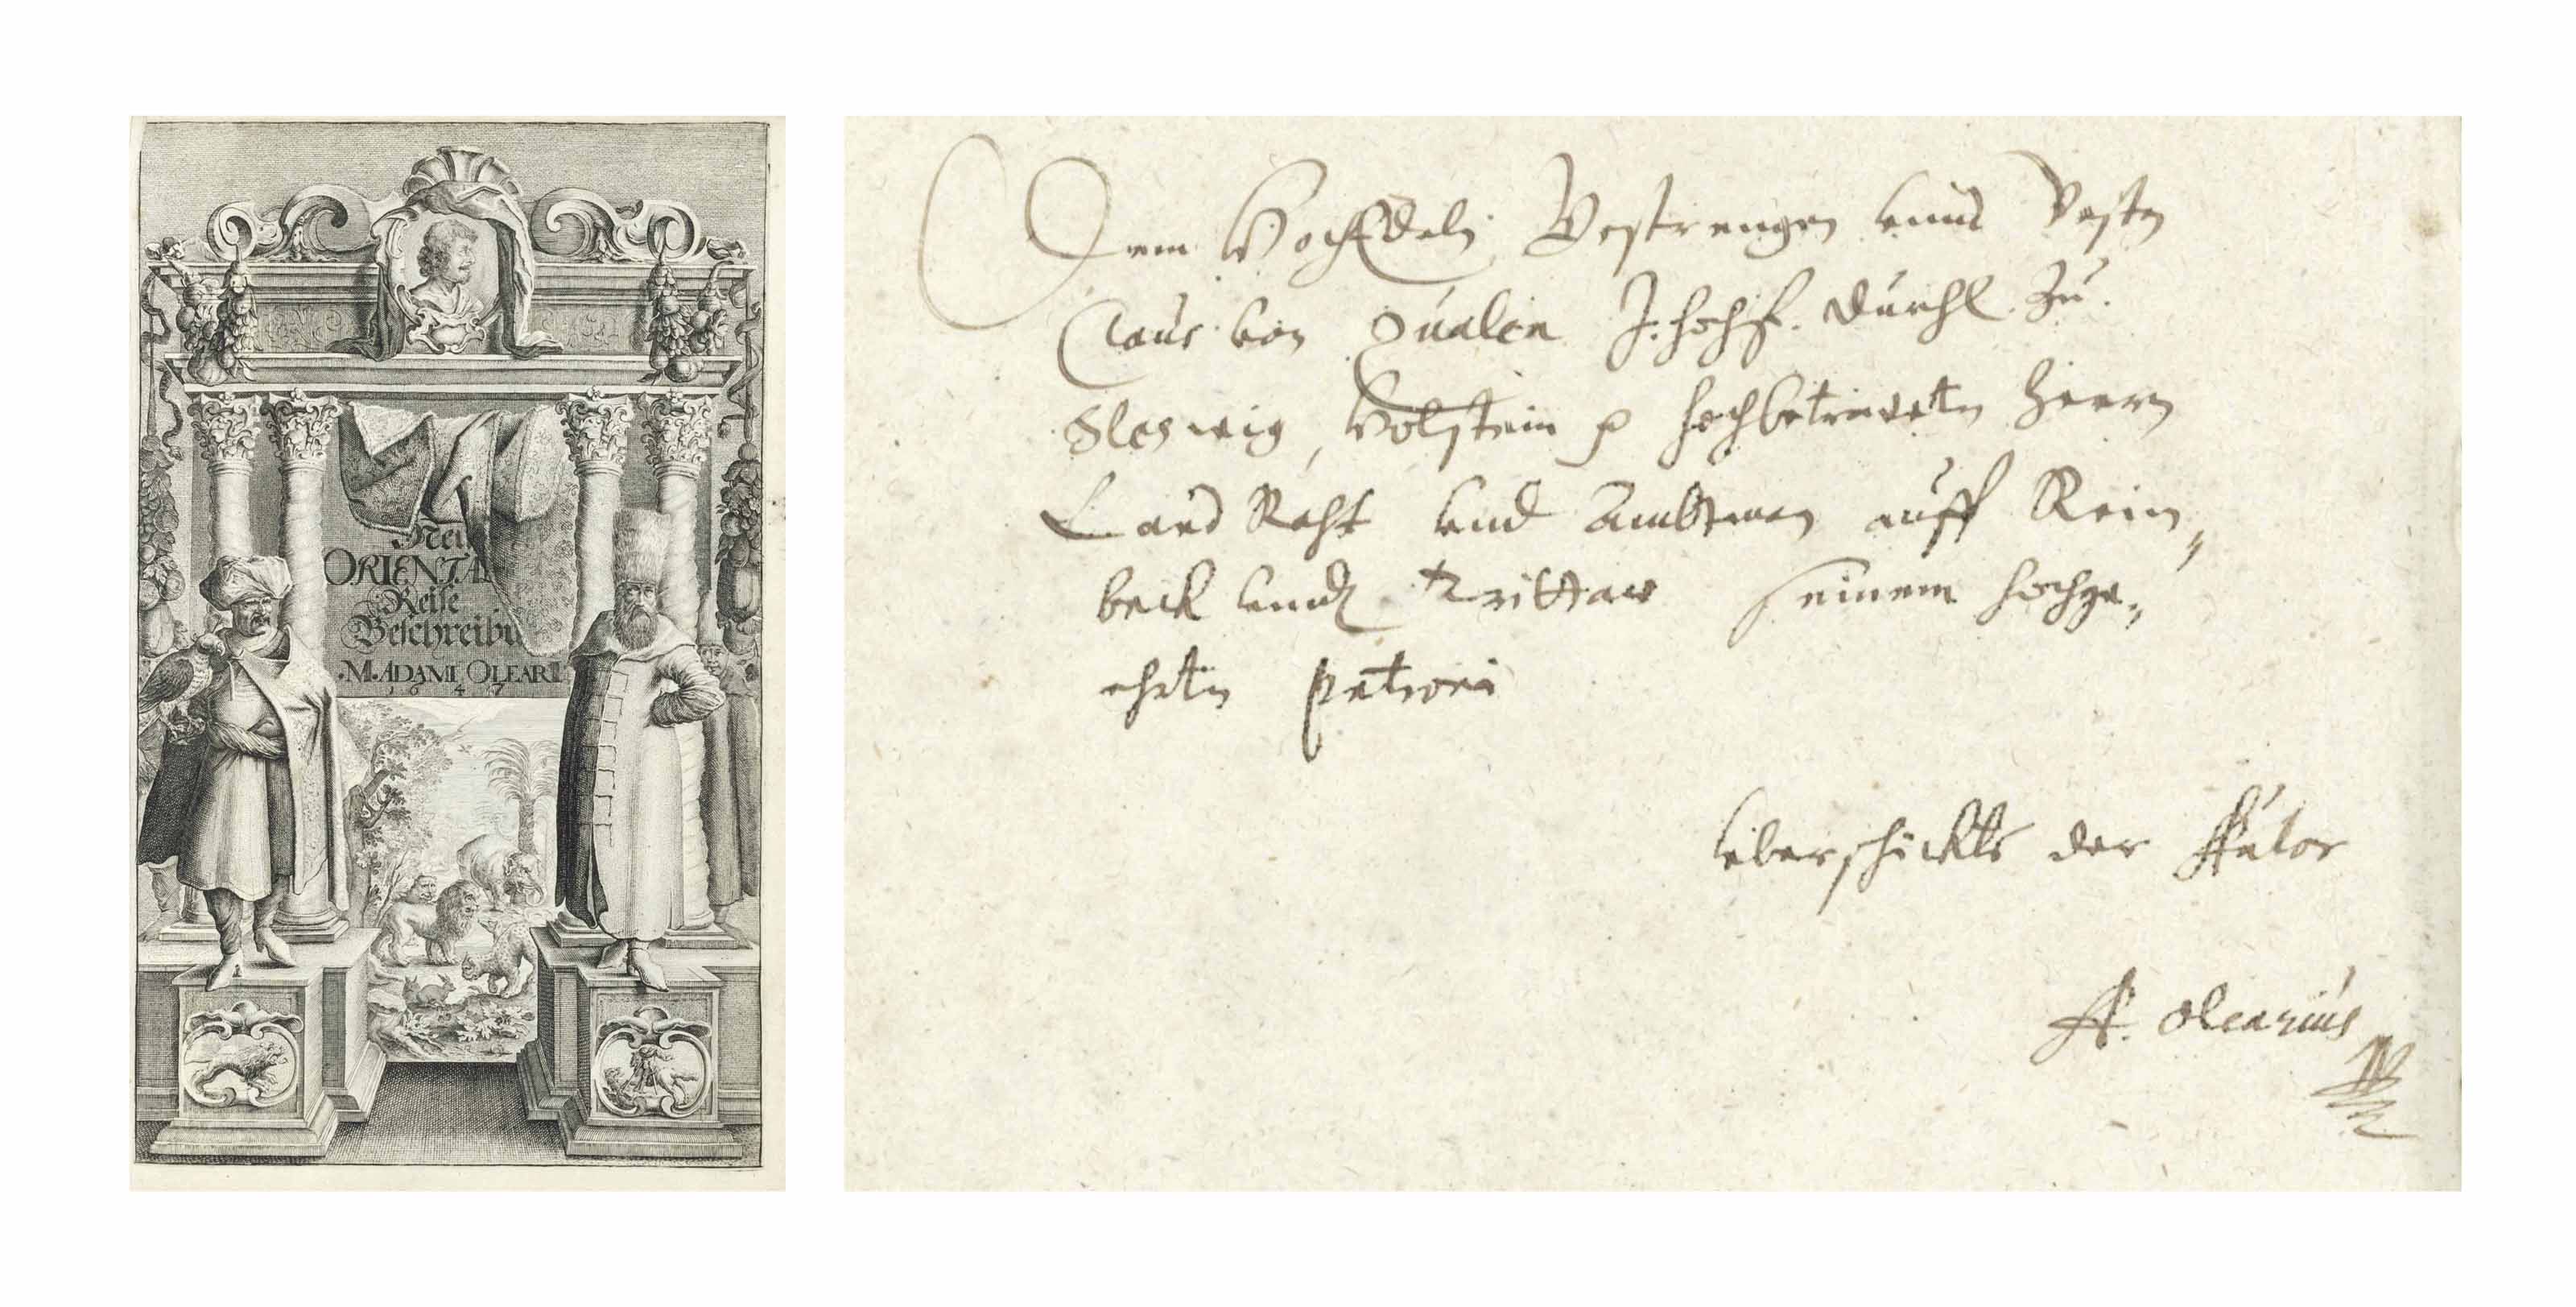 Neu
ORIENTA
Reise
Beschreibu
M. ADAMI OLEARII
1647
Dem HochEdeln Gestrengen unnd Vesten
Claus von Qualen J. hochf. Durchl. zu
Sleswig, Holstein p hochbetraweten Herrn
Land Raht und Ambtman auff Rein„
beck unnd Trittaw seinem hochge„
ehrten Patron
uberschickts der Autor
A. Olearius